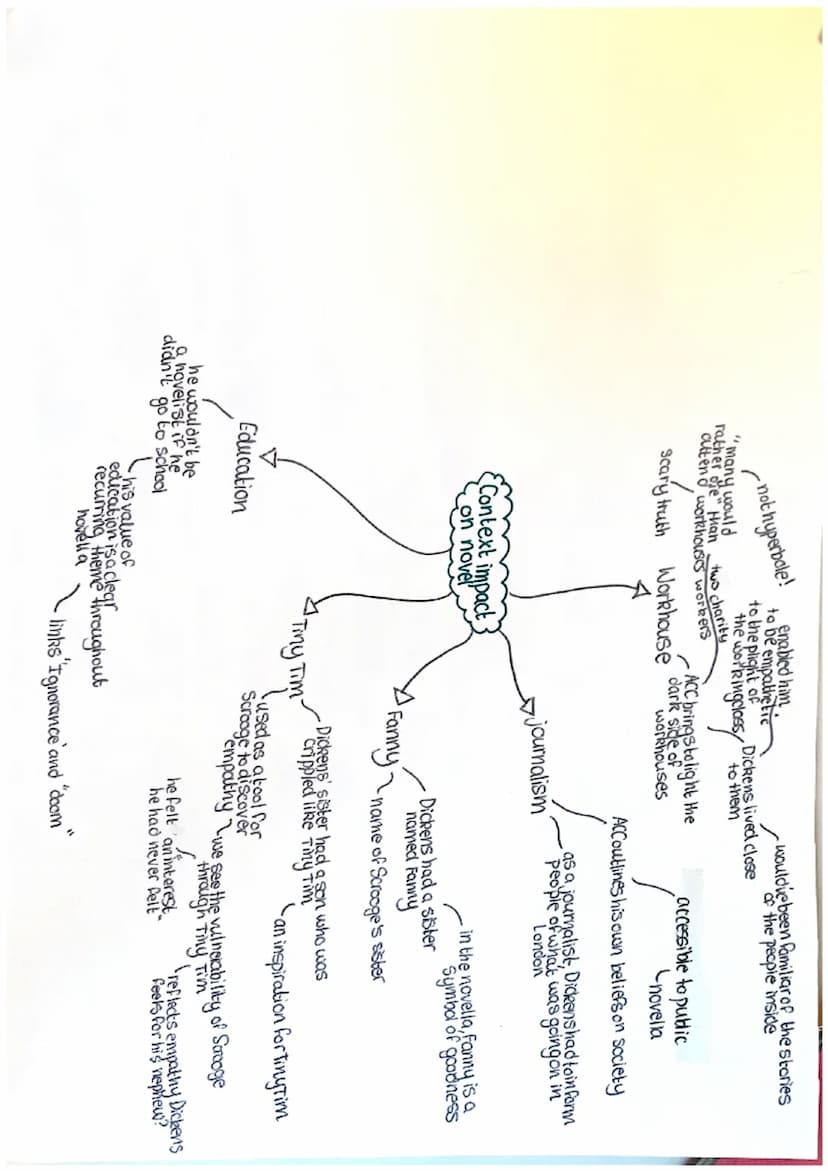 Context impact
on novel
Workhouse
scary truth
"many would
rather die" than
attend workhouses
not hyperbole!
two charity
workers
ACC brings to light the
dark side of
workhouses
Dickens lived close
to them
enabled him
to be empathetic
to the plight of
the working class
would've been familiar of the stories
of the people inside
journalism
ACC outlines his own beliefs on society
accessible to public
novella
as a journalist, Dickens had to inform
people of what was going on in
London
Fanny
Dickens had a sister
named Fanny
in the novella, Fanny is a
symbol of goodness
name of Scrooge's sister
Tiny Tim
Dickens' sister had a son who was
crippled like Tiny Tim
an inspiration for Tiny Tim
used as a tool for
Scrooge to discover
empathy
we see the vulnerability of Scrooge
through Tiny Tim
he felt "an interest
he had never felt"
reflects empathy Dickens
feels for his nephew?
Education
he wouldn't be
a novelist if he
didn't go to school
his value of
education is a clear
recurring theme throughout
novella
links 'Ignorance' and "doom"